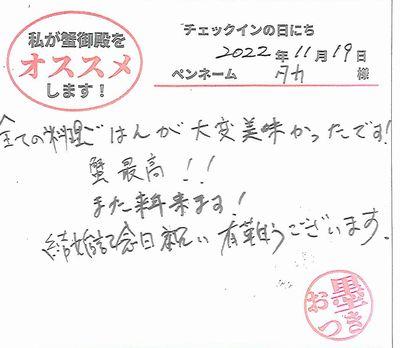 私が蟹御殿を
オススメ
します！
チェックインの日にち
2022年11月19日
ペンネーム タカ 様
全ての料理ごはんが大変美味かったです!
蟹最高!!
また来年来ます!
結婚記念日祝い有難うございます.
お墨
つき